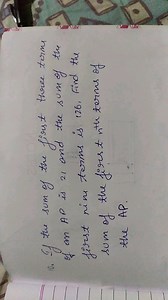 Q. If the sum of the first three terms
of an AP is 21 and the sum of the
first nine terms is 126, find the
sum of the first nth terms of
the AP.